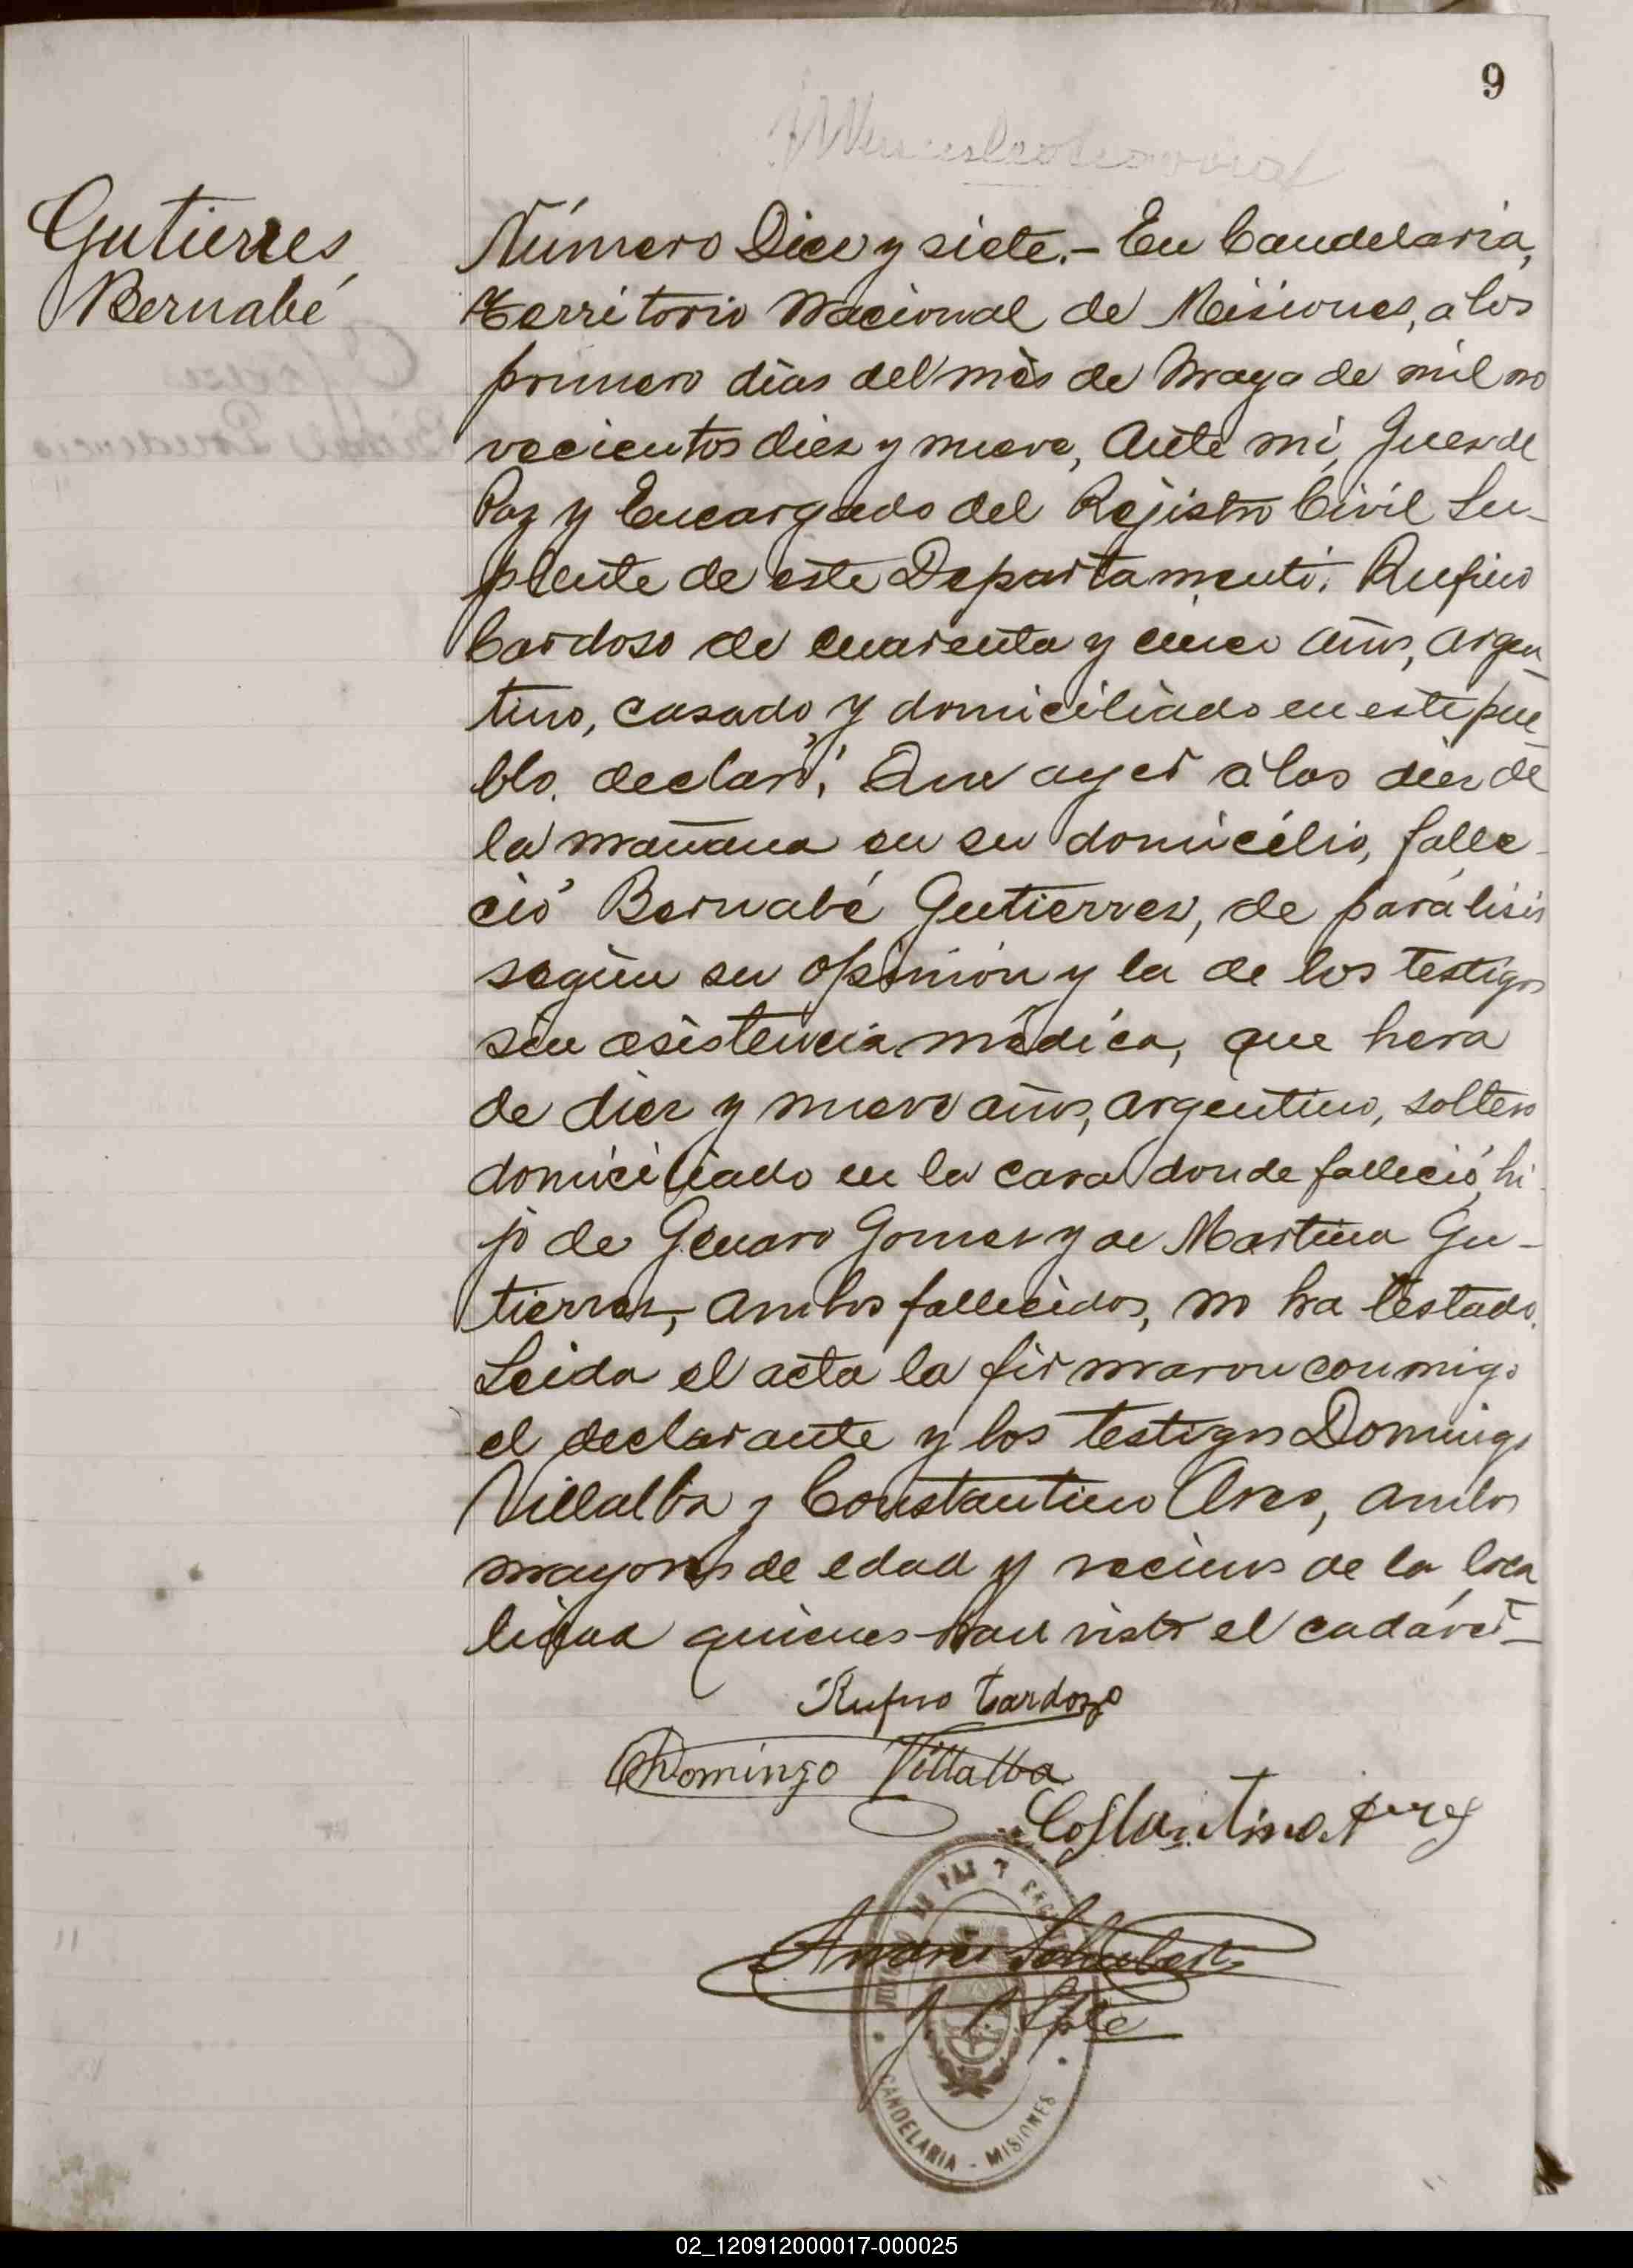 9
Gutierres
Bernabé
Número Diez y siete.- En Candelaria,
Territorio Nacional de Misiones, a los
primero dias del mès de Mayo de mil no
vecientos diez y nueve, Ante mi, Juez de
Paz y Encargado del Rejistro Civil Su-
plente de este Departamento: Rufino
Cardoso de cuarenta y cinco años, argen_
tino, casado, y domiciliado en este pue_
blo. declaró; Que ayer á las diez de
la mañana en su domicilio, falle-
ció Bernabé Gutierrez, de parálisis
según su opinión y la de los testigos
sin asistencia médica, que hera
de diez y nueve años, argentino, soltero
domiciliado en la casa donde falleció, hi-
jo de Genaro Gomez y de Martina Gu-
tierrez, ambos fallecidos, no ha testado.
Leida el acta la firmaron conmigo
el declarante y los testigos Domingo
Villalba y Constantino Ares, ambos
mayores de edad y vecinos de la loca
lidad quienes han visto el cadáver-
Rufino Cardozo
Domingo Villalba
Costantino Ares
Andres
J. P. Splte
JUZGADO DE PAZ Y
CANDELARIA - MISIONES
02_120912000017-000025